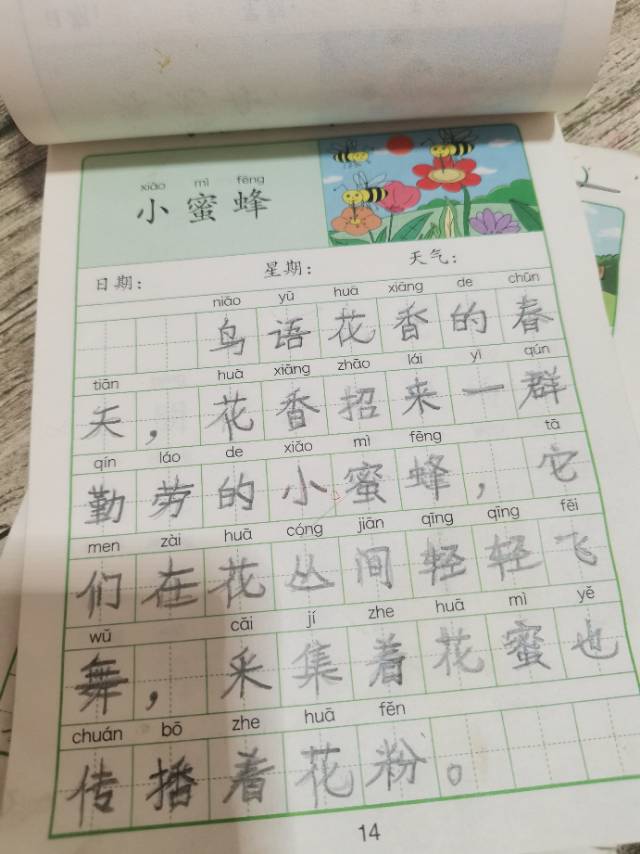 xiǎo mì fēng
小蜜蜂
日期： 星期： 天气：
niǎo yǔ huā xiāng de chūn
鸟语花香的春
tiān huā xiāng zhāo lái yì qún
天，花香招来一群
qín láo de xiǎo mì fēng tā
勤劳的小蜜蜂，它
men zài huā cóng jiān qīng qīng fēi
们在花丛间轻轻飞
wǔ cǎi jí zhe huā mì yě
舞，采集着花蜜也
chuán bō zhe huā fěn
传播着花粉。
14